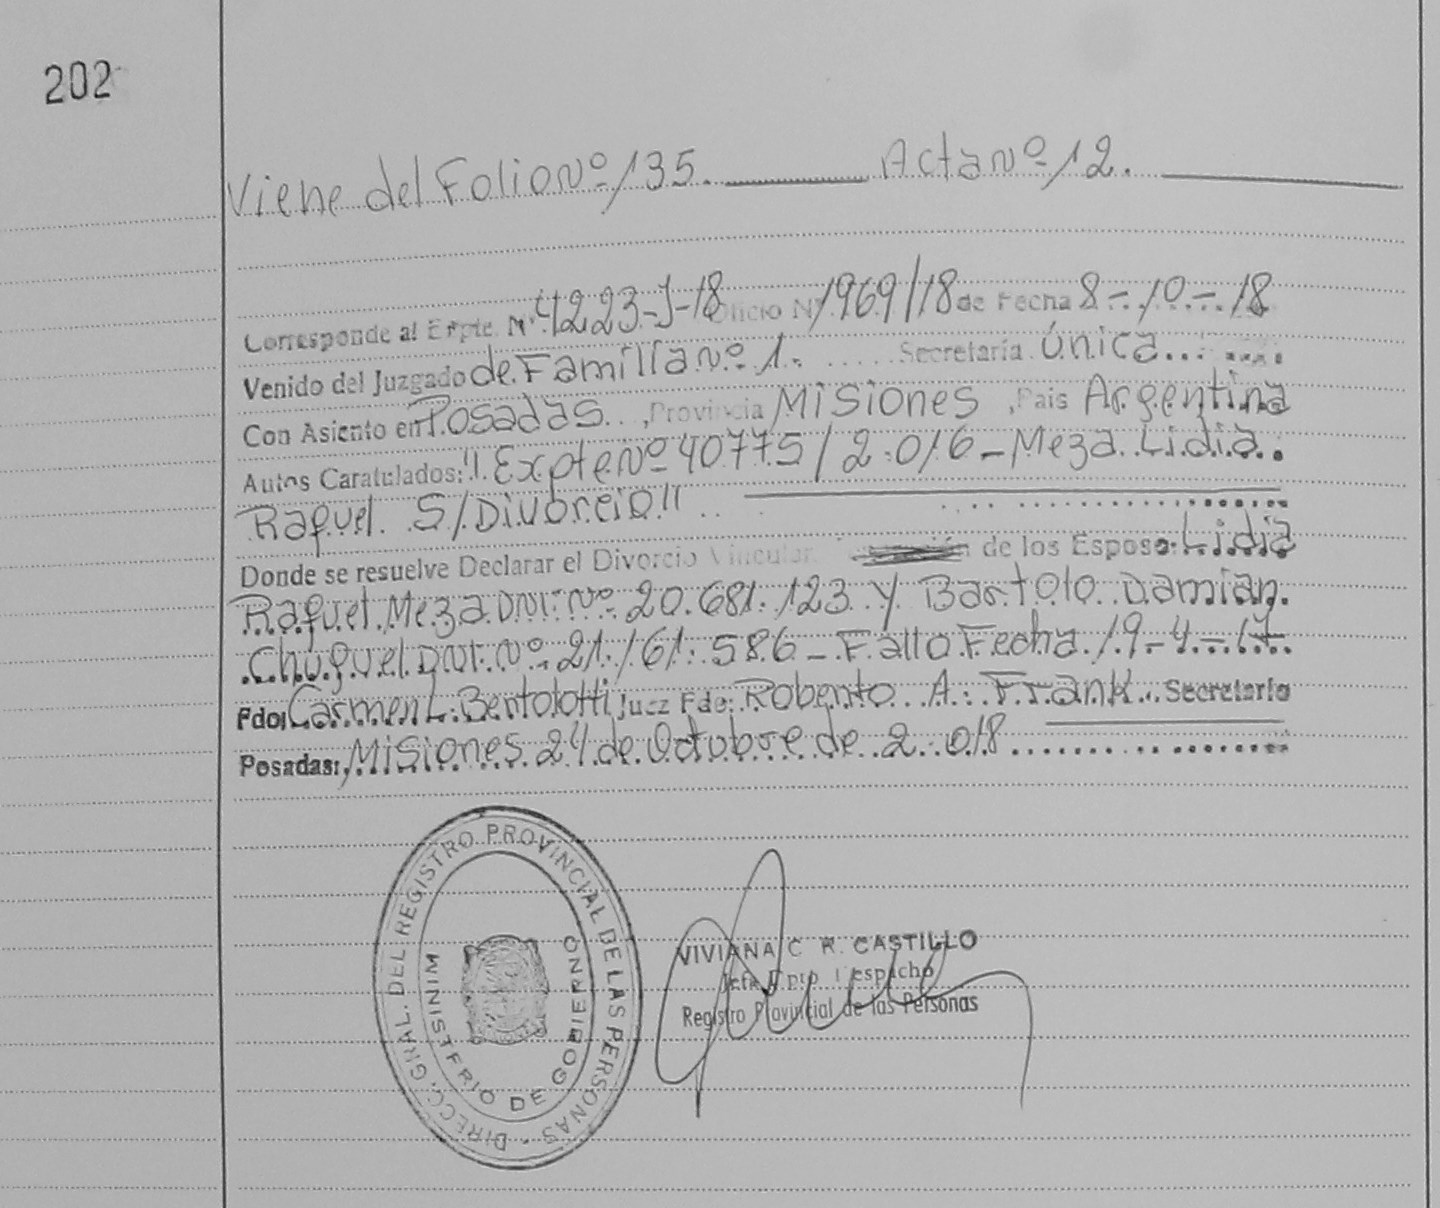 202
Viene del Folio Nº 135. Acta Nº 12.
Corresponde al Expte. Nº 4223-J-18 Oficio Nº 1969/18 de Fecha 8-10-18
Venido del Juzgado de Familia Nº 1. Secretaría Única
Con Asiento en Posadas, Provincia Misiones, Pais Argentina
Autos Caratulados: "Expte Nº 40775/2.016 - Meza Lidia
Raquel S/Divorcio"
Donde se resuelve Declarar el Divorcio Vincular de los Esposo: Lidia
Raquel Meza DNI: Nº 20.681.123 y Bartolo Damian
Chuquel DNI: Nº 21.161.586 - Fallo Fecha 19-4-17
Fdo: Carmen L. Bertolotti Juez Fdo: Roberto A. Frank. Secretario
Posadas: Misiones 24 de Octubre de 2.018
DIRECC. GRAL. DEL REGISTRO PROVINCIAL DE LAS PERSONAS -
MINISTERIO DE GOBIERNO
VIVIANA C R. CASTILLO
Jefe Dpto Despacho
Registro Provincial de las Personas